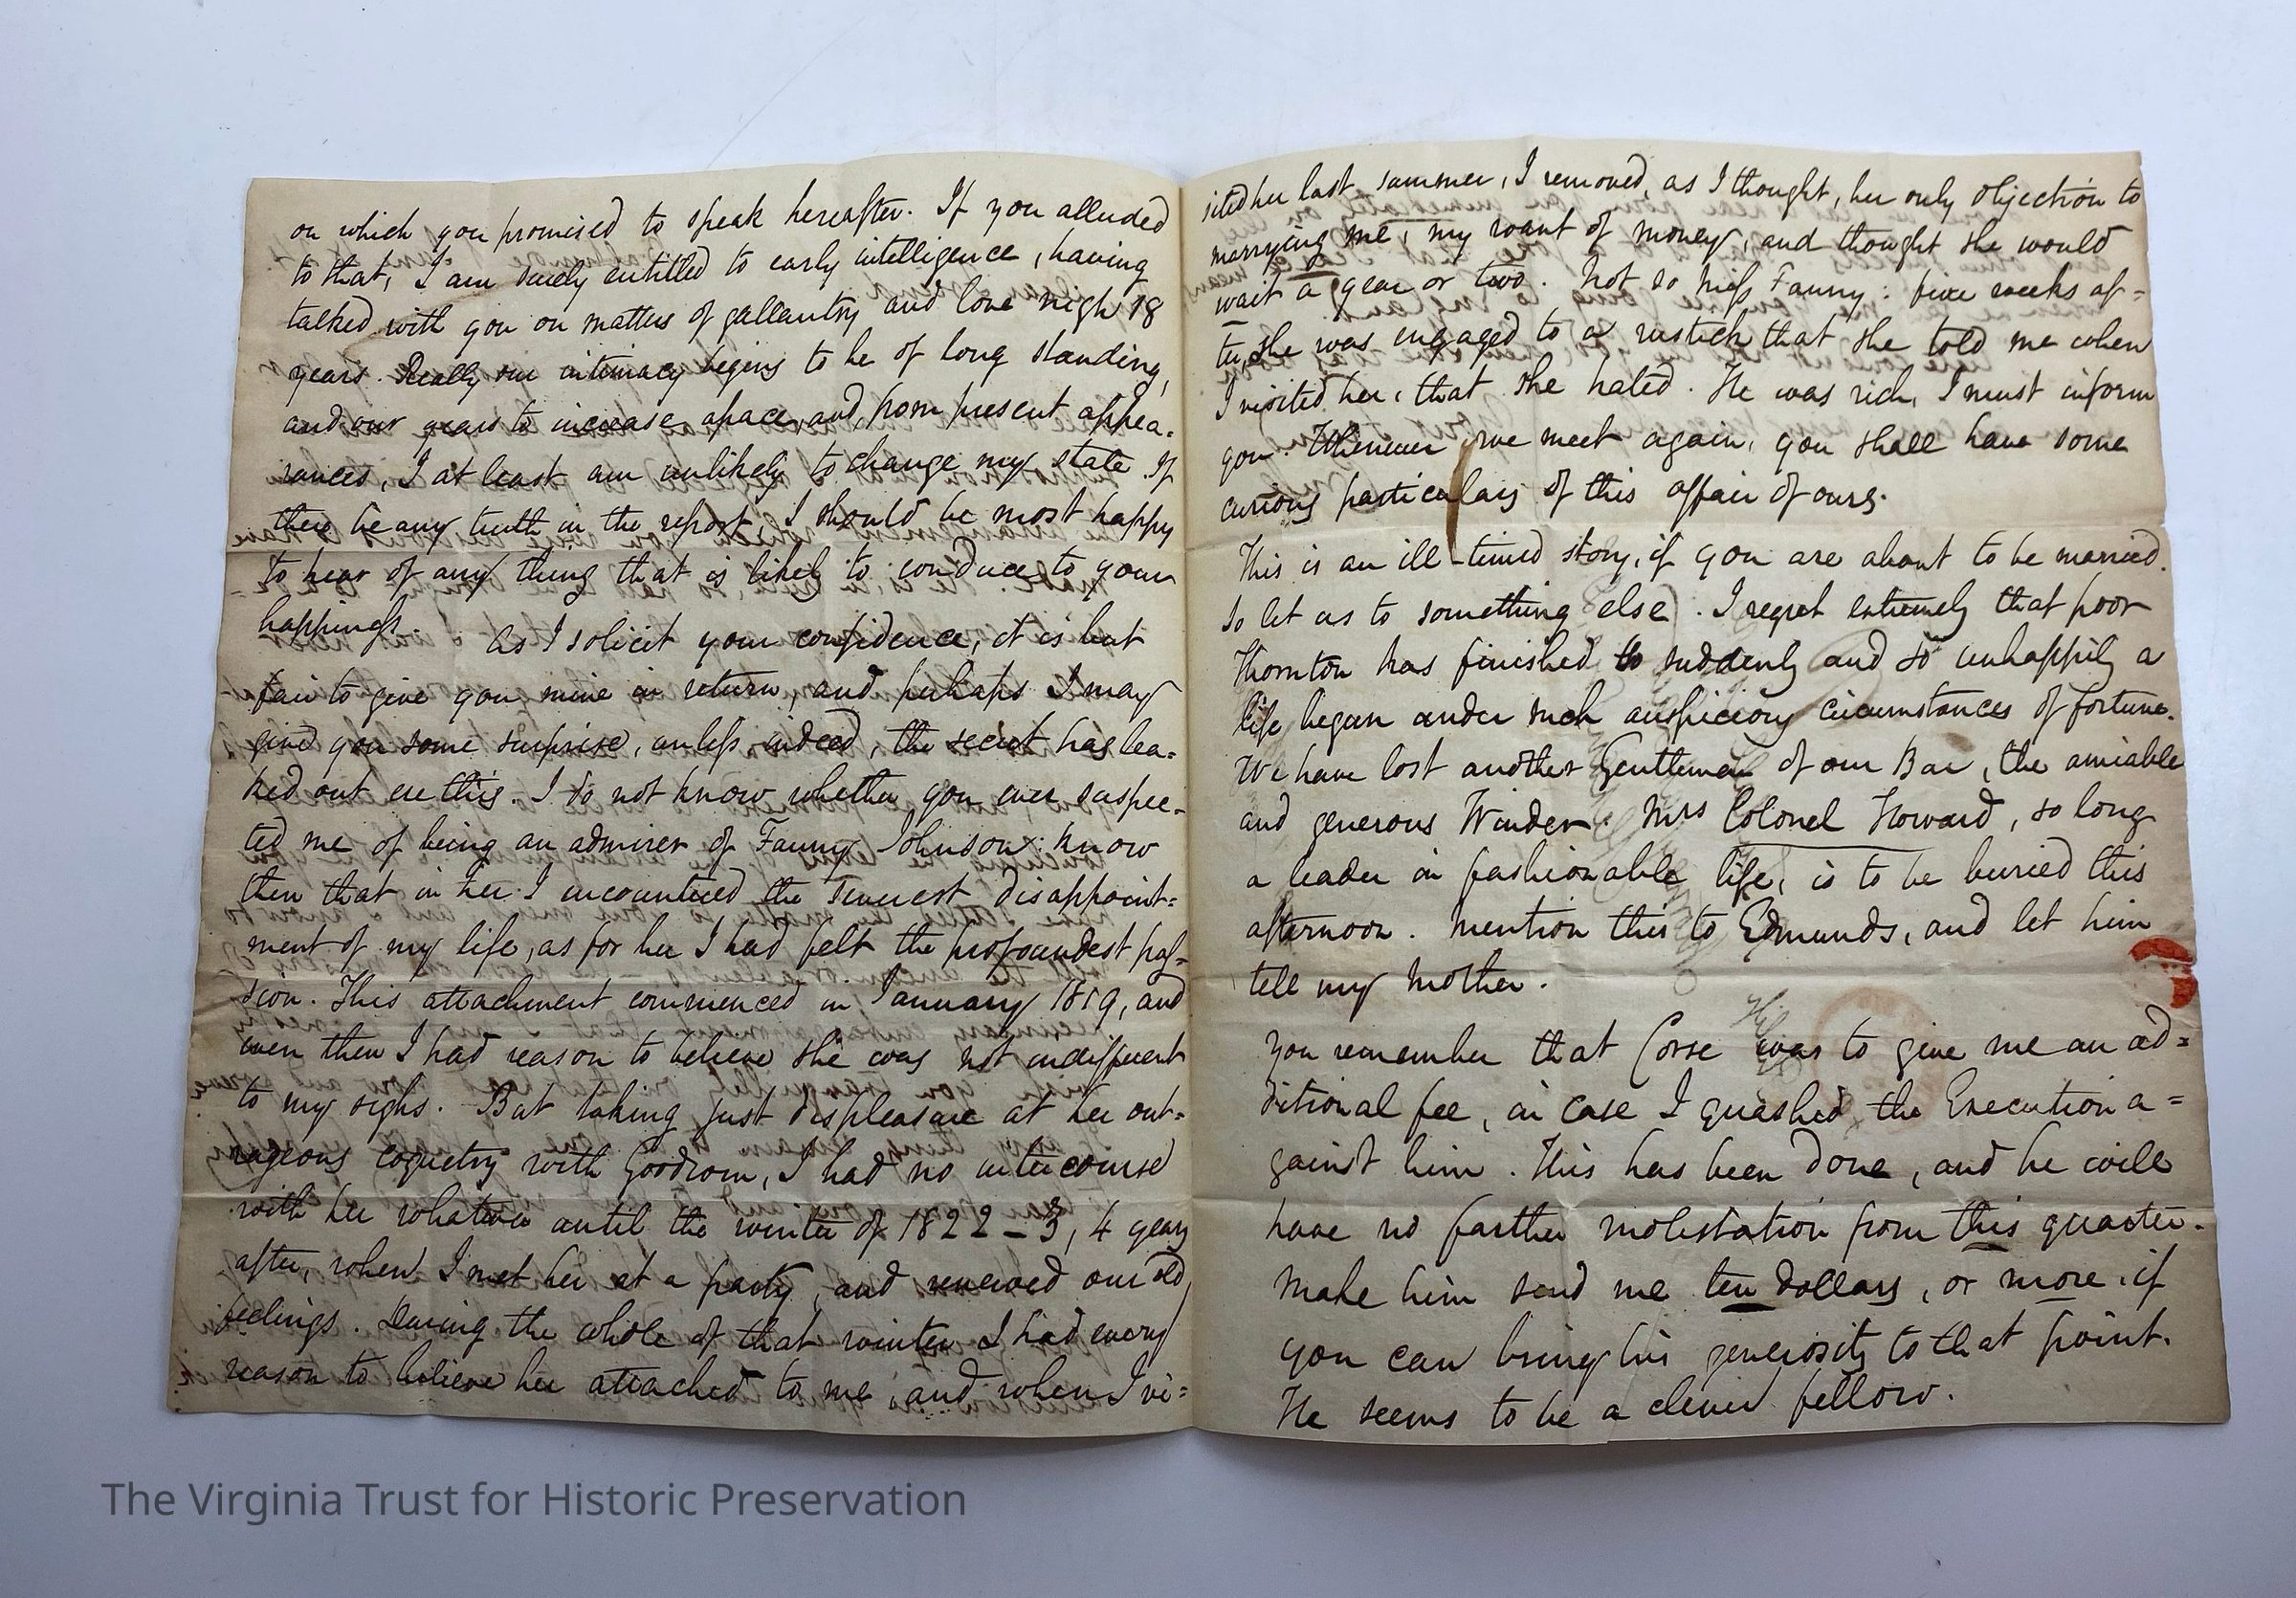 on which you promised to speak hereafter. If you alluded
to that, I am surely entitled to early intelligence, having
talked with you on matters of gallantry and love nigh 18
years. Really our intimacy begins to be of long standing,
and our years to increase apace, and from present appea-
rances, I at least am unlikely to change my state. If
there be any truth in the report, I should be most happy
to hear of any thing that is likely to conduce to your
happiness. As I solicit your confidence, it is but
fair to give you mine in return, and perhaps I may
give you some surprise, unless, indeed, the secret has lea-
ked out ere this. I do not know whether you ever suspec-
ted me of being an admirer of Fanny Johnson: know
then that in her I encountered the severest disappoint=
ment of my life, as for her I had felt the profoundest pas=
sion. This attachment commenced in January 1819, and
even then I had reason to believe she was not indifferent
to my sighs. But taking just displeasure at her out=
rageous coquetry with Goodrom, I had no intercourse
with her whatever until the winter of 1822-3, 4 years
after, when I met her at a party, and renewed our old
feelings. During the whole of that winter I had every
reason to believe her attached to me, and when I vi=
sited her last summer, I removed, as I thought, her only objection to
marrying me, my want of money, and thought she would
wait a year or two. Not so Miss Fanny: five weeks af=
ter, she was engaged to a rustick that she told me when
I visited her, that she hated. He was rich, I must inform
you. Whenever we meet again, you shall have some
curious particulars of this affair of ours.
This is an ill-timed story, if you are about to be married.
So let us to something else. I regret extremely that poor
Thornton has finished so suddenly and so unhappily a
life began under such auspicious circumstances of fortune.
We have lost another Gentleman of our Bar, the amiable
and generous Winder. Mrs Colonel Howard, so long
a leader in fashionable life, is to be buried this
afternoon. Mention this to Edmunds, and let him
tell my mother.
You remember that Corse was to give me an ad=
ditional fee, in case I quashed the Execution a=
gainst him. This has been done, and he will
have no farther molestation from this quarter.
Make him send me ten dollars, or more, if
you can bring his generosity to that point.
He seems to be a clever fellow.
The Virginia Trust for Historic Preservation